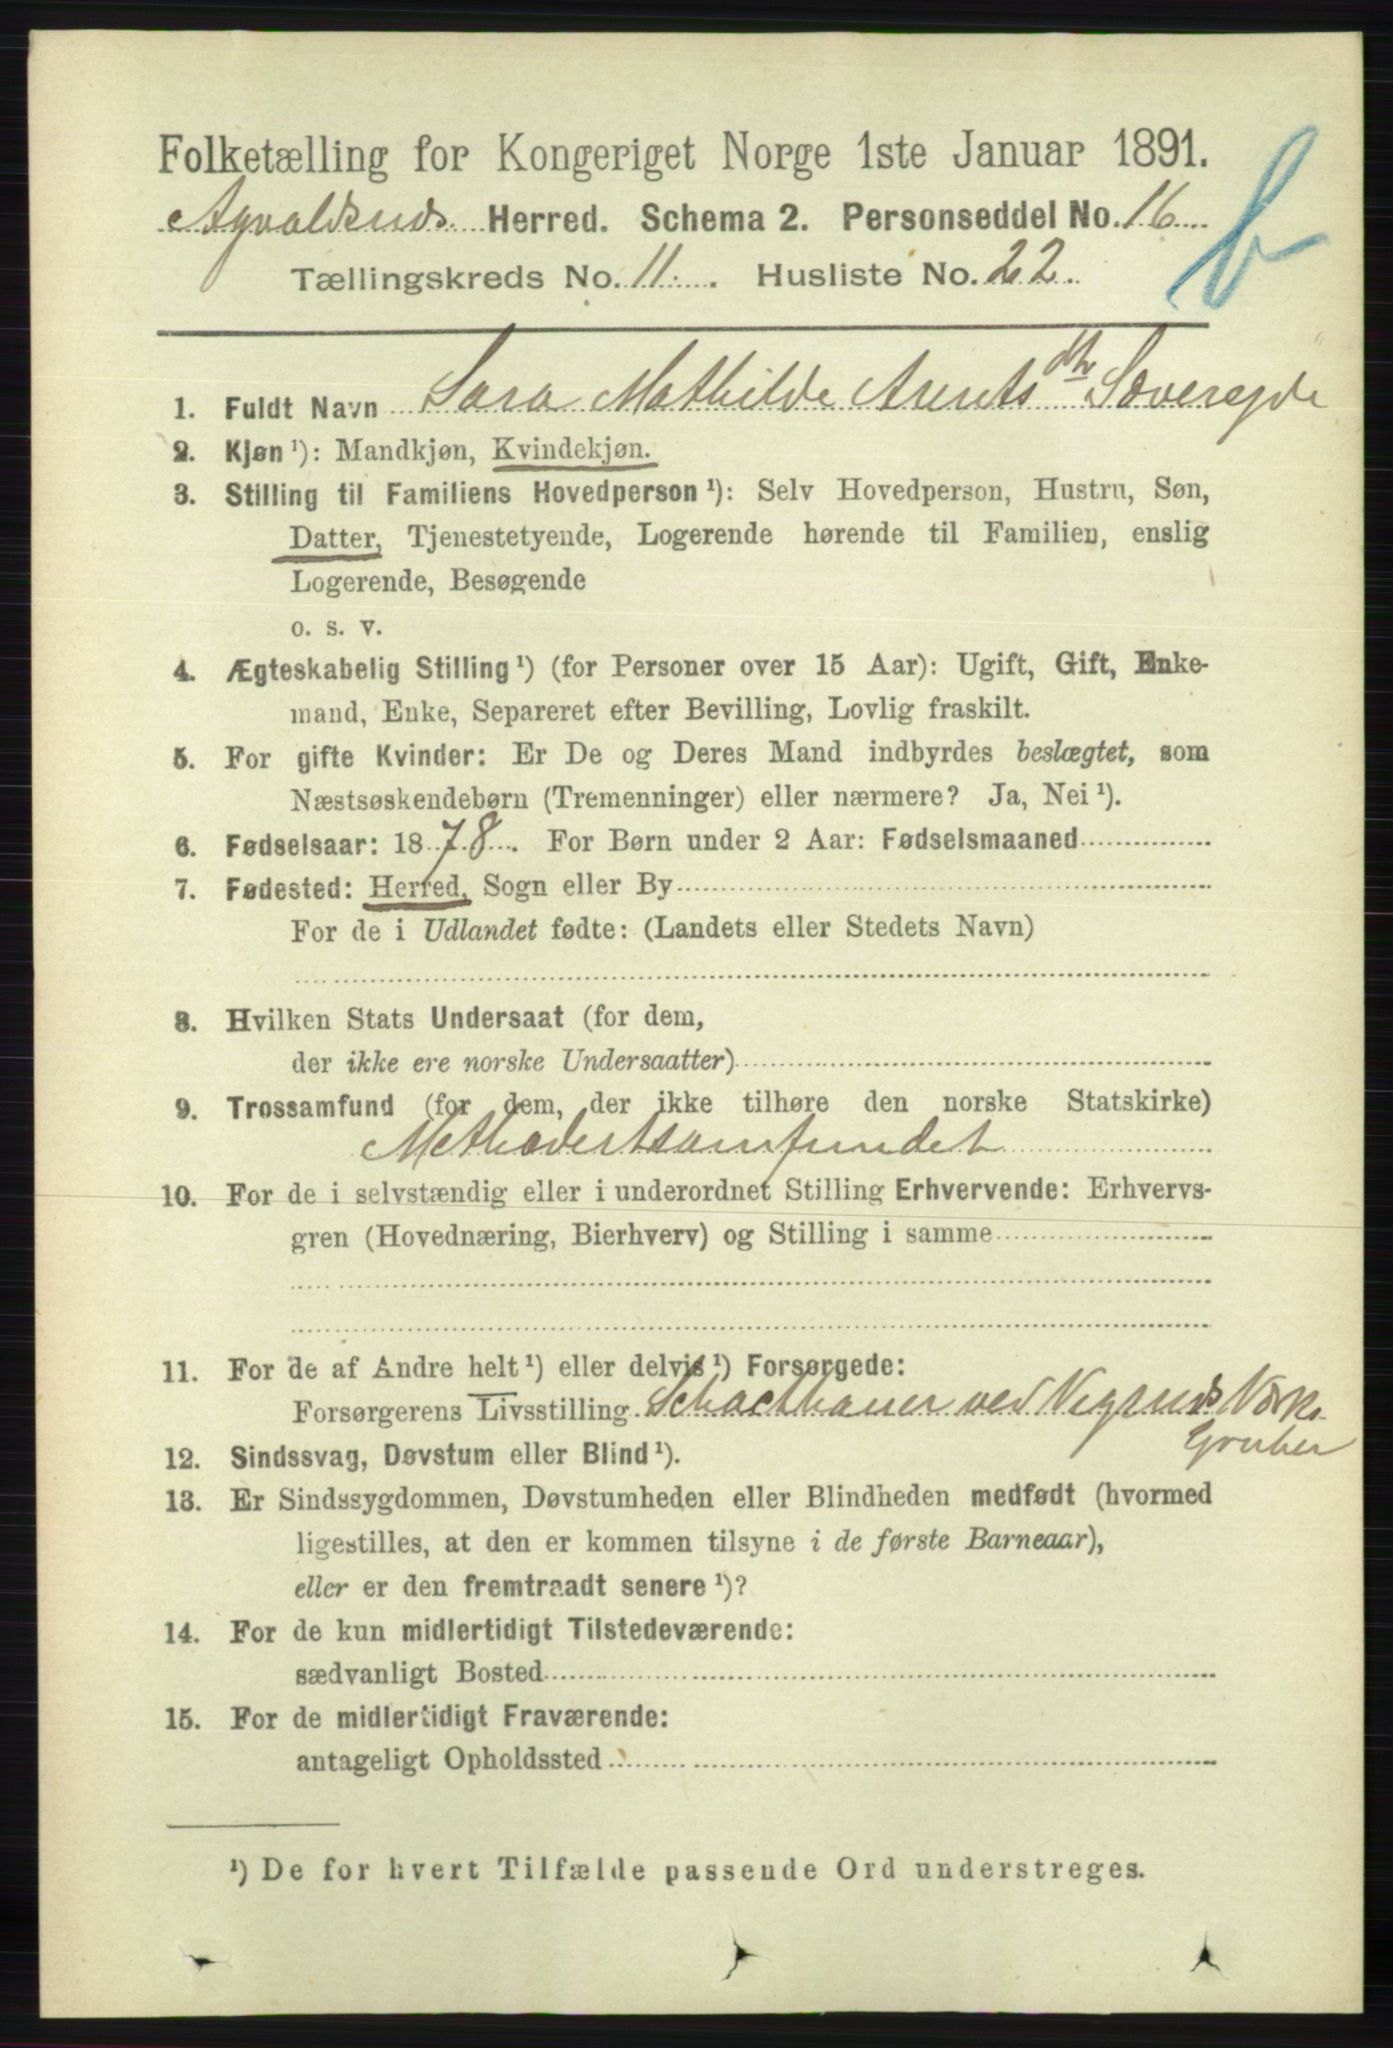 Folketælling for Kongeriget Norge 1ste Januar 1891.
Agvaldsnds Herred. Schema 2. Personseddel No. 16
Tællingskreds No. 11. Husliste No. 22.
1. Fuldt Navn Sara Mathilde Arentsdtr
2. Kjøn ¹): Mandkjøn, Kvindekjøn.
3. Stilling til Familiens Hovedperson ¹): Selv Hovedperson, Hustru, Søn,
Datter, Tjenestetyende, Logerende hørende til Familien, enslig
Logerende, Besøgende
o. s. v.
4. Ægteskabelig Stilling ¹) (for Personer over 15 Aar): Ugift, Gift, Enke-
mand, Enke, Separeret efter Bevilling, Lovlig fraskilt.
5. For gifte Kvinder: Er De og Deres Mand indbyrdes beslægtet, som
Næstsøskendebørn (Tremenninger) eller nærmere? Ja, Nei ¹).
6. Fødselsaar: 1878. For Børn under 2 Aar: Fødselsmaaned
7. Fødested: Herred, Sogn eller By
For de i Udlandet fødte: (Landets eller Stedets Navn)
8. Hvilken Stats Undersaat (for dem,
der ikke ere norske Undersaatter)
9. Trossamfund (for dem, der ikke tilhøre den norske Statskirke)
Methodertsamfundet
10. For de i selvstændig eller i underordnet Stilling Erhvervende: Erhvervs-
gren (Hovednæring, Bierhverv) og Stilling i samme
11. For de af Andre helt ¹) eller delvis ¹) Forsørgede:
Forsørgerens Livsstilling Schacthauer ved Vigsnds Værks
Gruber
12. Sindssvag, Døvstum eller Blind ¹).
13. Er Sindssygdommen, Døvstumheden eller Blindheden medfødt (hvormed
ligestilles, at den er kommen tilsyne i de første Barneaar),
eller er den fremtraadt senere ¹)?
14. For de kun midlertidigt Tilstedeværende:
sædvanligt Bosted
15. For de midlertidigt Fraværende:
antageligt Opholdssted
¹) De for hvert Tilfælde passende Ord understreges.